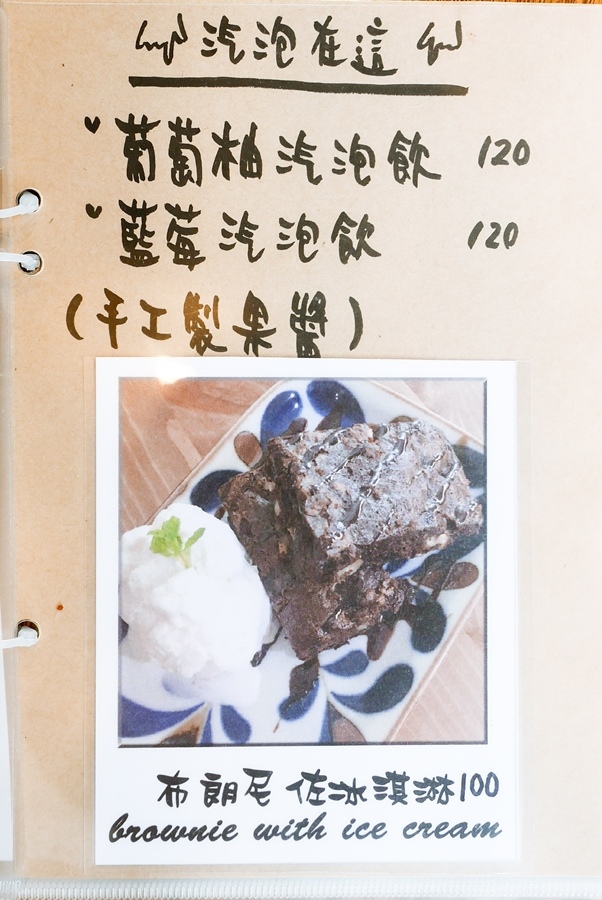 汽泡在這
葡萄柚汽泡飲 120
藍莓汽泡飲 120
(手工製果醬)
布朗尼佐冰淇淋100
brownie with ice cream